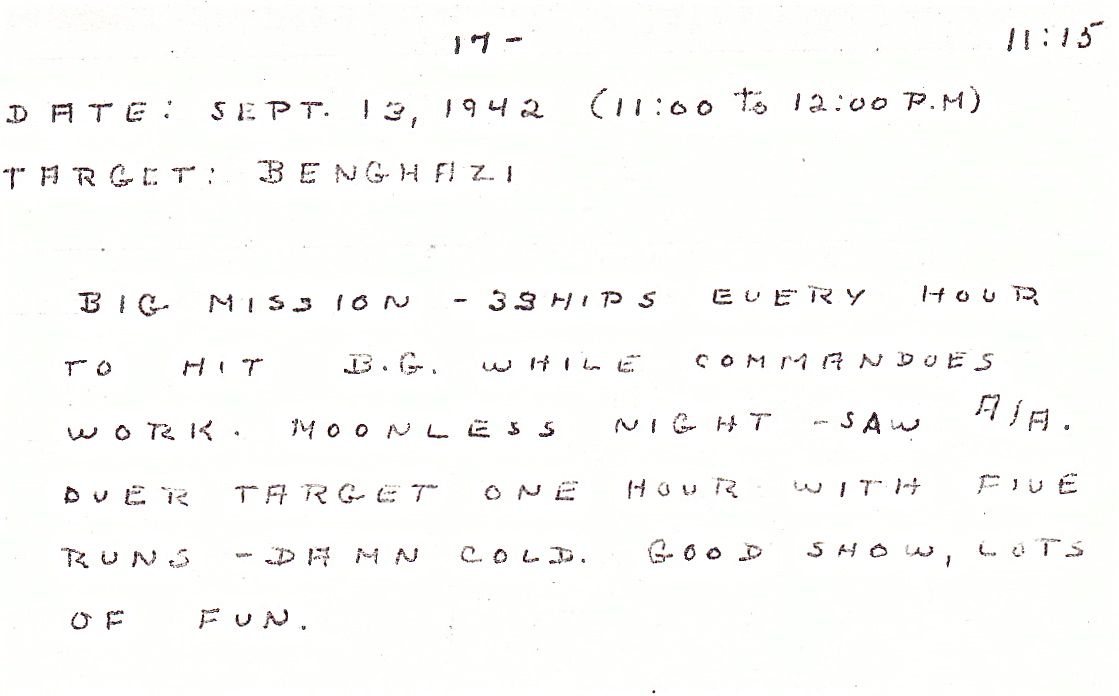 17- 11:15
DATE: SEPT. 13, 1942 (11:00 to 12:00 P.M)
TARGET: BENGHAZI
BIG MISSION - 3 SHIPS EVERY HOUR
TO HIT B.G. WHILE COMMANDOES
WORK. MOONLESS NIGHT - SAW A/A.
OVER TARGET ONE HOUR WITH FIVE
RUNS - DAMN COLD. GOOD SHOW, LOTS
OF FUN.